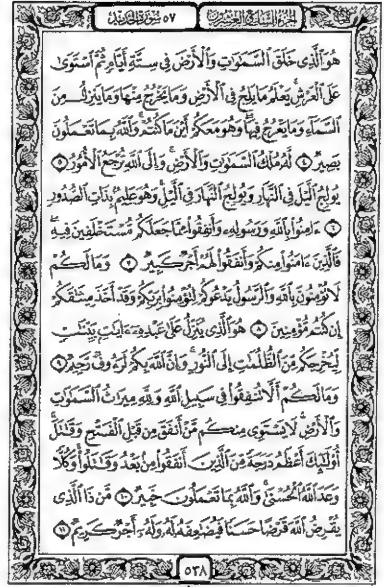 الجزء السابع والعشرون ٥٧ سورة الحديد
هُوَ ٱلَّذِى خَلَقَ ٱلسَّمَٰوَٰتِ وَٱلْأَرْضَ فِى سِتَّةِ أَيَّامٍ ثُمَّ ٱسْتَوَىٰ
عَلَى ٱلْعَرْشِ يَعْلَمُ مَا يَلِجُ فِى ٱلْأَرْضِ وَمَا يَخْرُجُ مِنْهَا وَمَا يَنزِلُ مِنَ
ٱلسَّمَآءِ وَمَا يَعْرُجُ فِيهَا وَهُوَ مَعَكُمْ أَيْنَ مَا كُنتُمْ وَٱللَّهُ بِمَا تَعْمَلُونَ
بَصِيرٌ ٤ لَّهُۥ مُلْكُ ٱلسَّمَٰوَٰتِ وَٱلْأَرْضِ وَإِلَى ٱللَّهِ تُرْجَعُ ٱلْأُمُورُ ٥
يُولِجُ ٱلَّيْلَ فِى ٱلنَّهَارِ وَيُولِجُ ٱلنَّهَارَ فِى ٱلَّيْلِ وَهُوَ عَلِيمٌۢ بِذَاتِ ٱلصُّدُورِ
٦ ءَامِنُوا۟ بِٱللَّهِ وَرَسُولِهِۦ وَأَنفِقُوا۟ مِمَّا جَعَلَكُم مُّسْتَخْلَفِينَ فِيهِ
فَٱلَّذِينَ ءَامَنُوا۟ مِنكُمْ وَأَنفَقُوا۟ لَهُمْ أَجْرٌ كَبِيرٌ ٧ وَمَا لَكُمْ
لَا تُؤْمِنُونَ بِٱللَّهِ وَٱلرَّسُولُ يَدْعُوكُمْ لِتُؤْمِنُوا۟ بِرَبِّكُمْ وَقَدْ أَخَذَ مِيثَٰقَكُمْ
إِن كُنتُم مُّؤْمِنِينَ ٨ هُوَ ٱلَّذِى يُنَزِّلُ عَلَىٰ عَبْدِهِۦٓ ءَايَٰتٍۭ بَيِّنَٰتٍ
لِّيُخْرِجَكُم مِّنَ ٱلظُّلُمَٰتِ إِلَى ٱلنُّورِ وَإِنَّ ٱللَّهَ بِكُمْ لَرَءُوفٌ رَّحِيمٌ ٩
وَمَا لَكُمْ أَلَّا تُنفِقُوا۟ فِى سَبِيلِ ٱللَّهِ وَلِلَّهِ مِيرَٰثُ ٱلسَّمَٰوَٰتِ
وَٱلْأَرْضِ لَا يَسْتَوِى مِنكُم مَّنْ أَنفَقَ مِن قَبْلِ ٱلْفَتْحِ وَقَٰتَلَ
أُو۟لَٰٓئِكَ أَعْظَمُ دَرَجَةً مِّنَ ٱلَّذِينَ أَنفَقُوا۟ مِنۢ بَعْدُ وَقَٰتَلُوا۟ وَكُلًّا
وَعَدَ ٱللَّهُ ٱلْحُسْنَىٰ وَٱللَّهُ بِمَا تَعْمَلُونَ خَبِيرٌ ١٠ مَّن ذَا ٱلَّذِى
يُقْرِضُ ٱللَّهَ قَرْضًا حَسَنًا فَيُضَٰعِفَهُۥ لَهُۥ وَلَهُۥٓ أَجْرٌ كَرِيمٌ ١١
٥٣٨